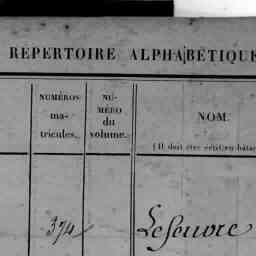 REPERTOIRE ALPHABETIQUE
NUMÉROS
ma-
tricules.
NU-
MÉRO
du
volume.
NOM.
(Il doit être écrit en bâta
374
Lefeuvre